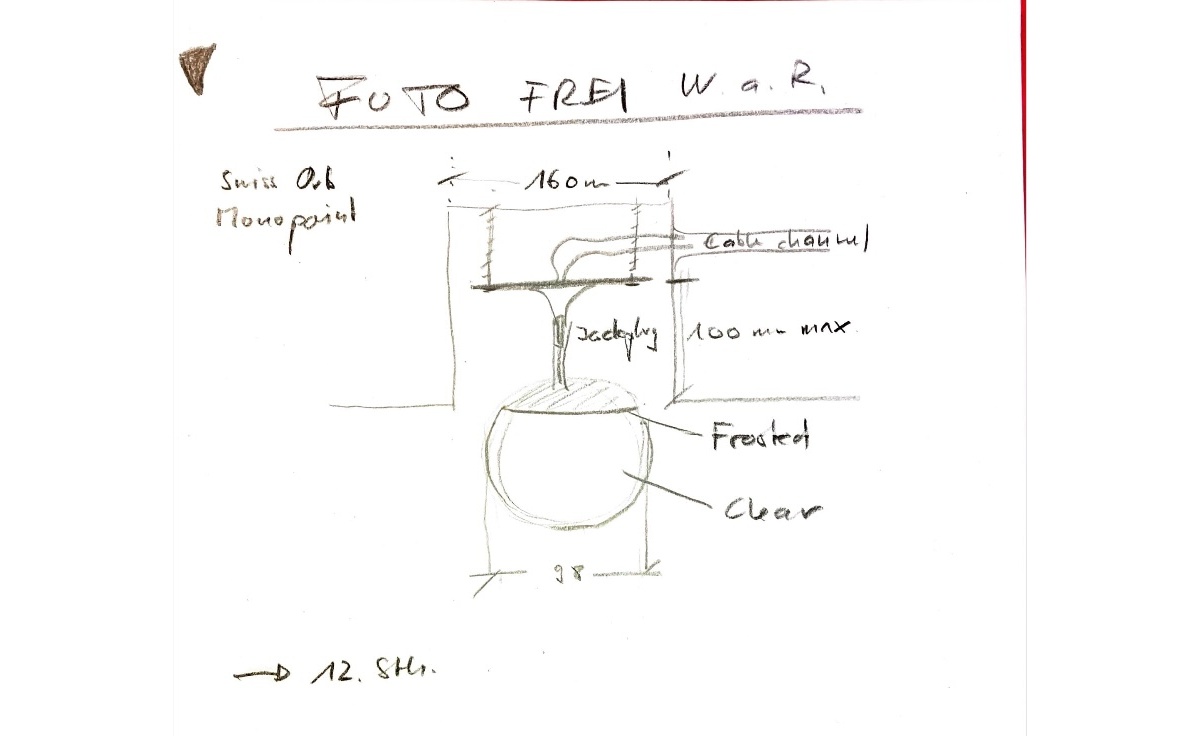 FOTO FREI W.a.R.
Swiss Orb
Monopoint
160m
Cable channel
Jackplug
100 mm max.
Frosted
Clear
98
→ 12. Stk.